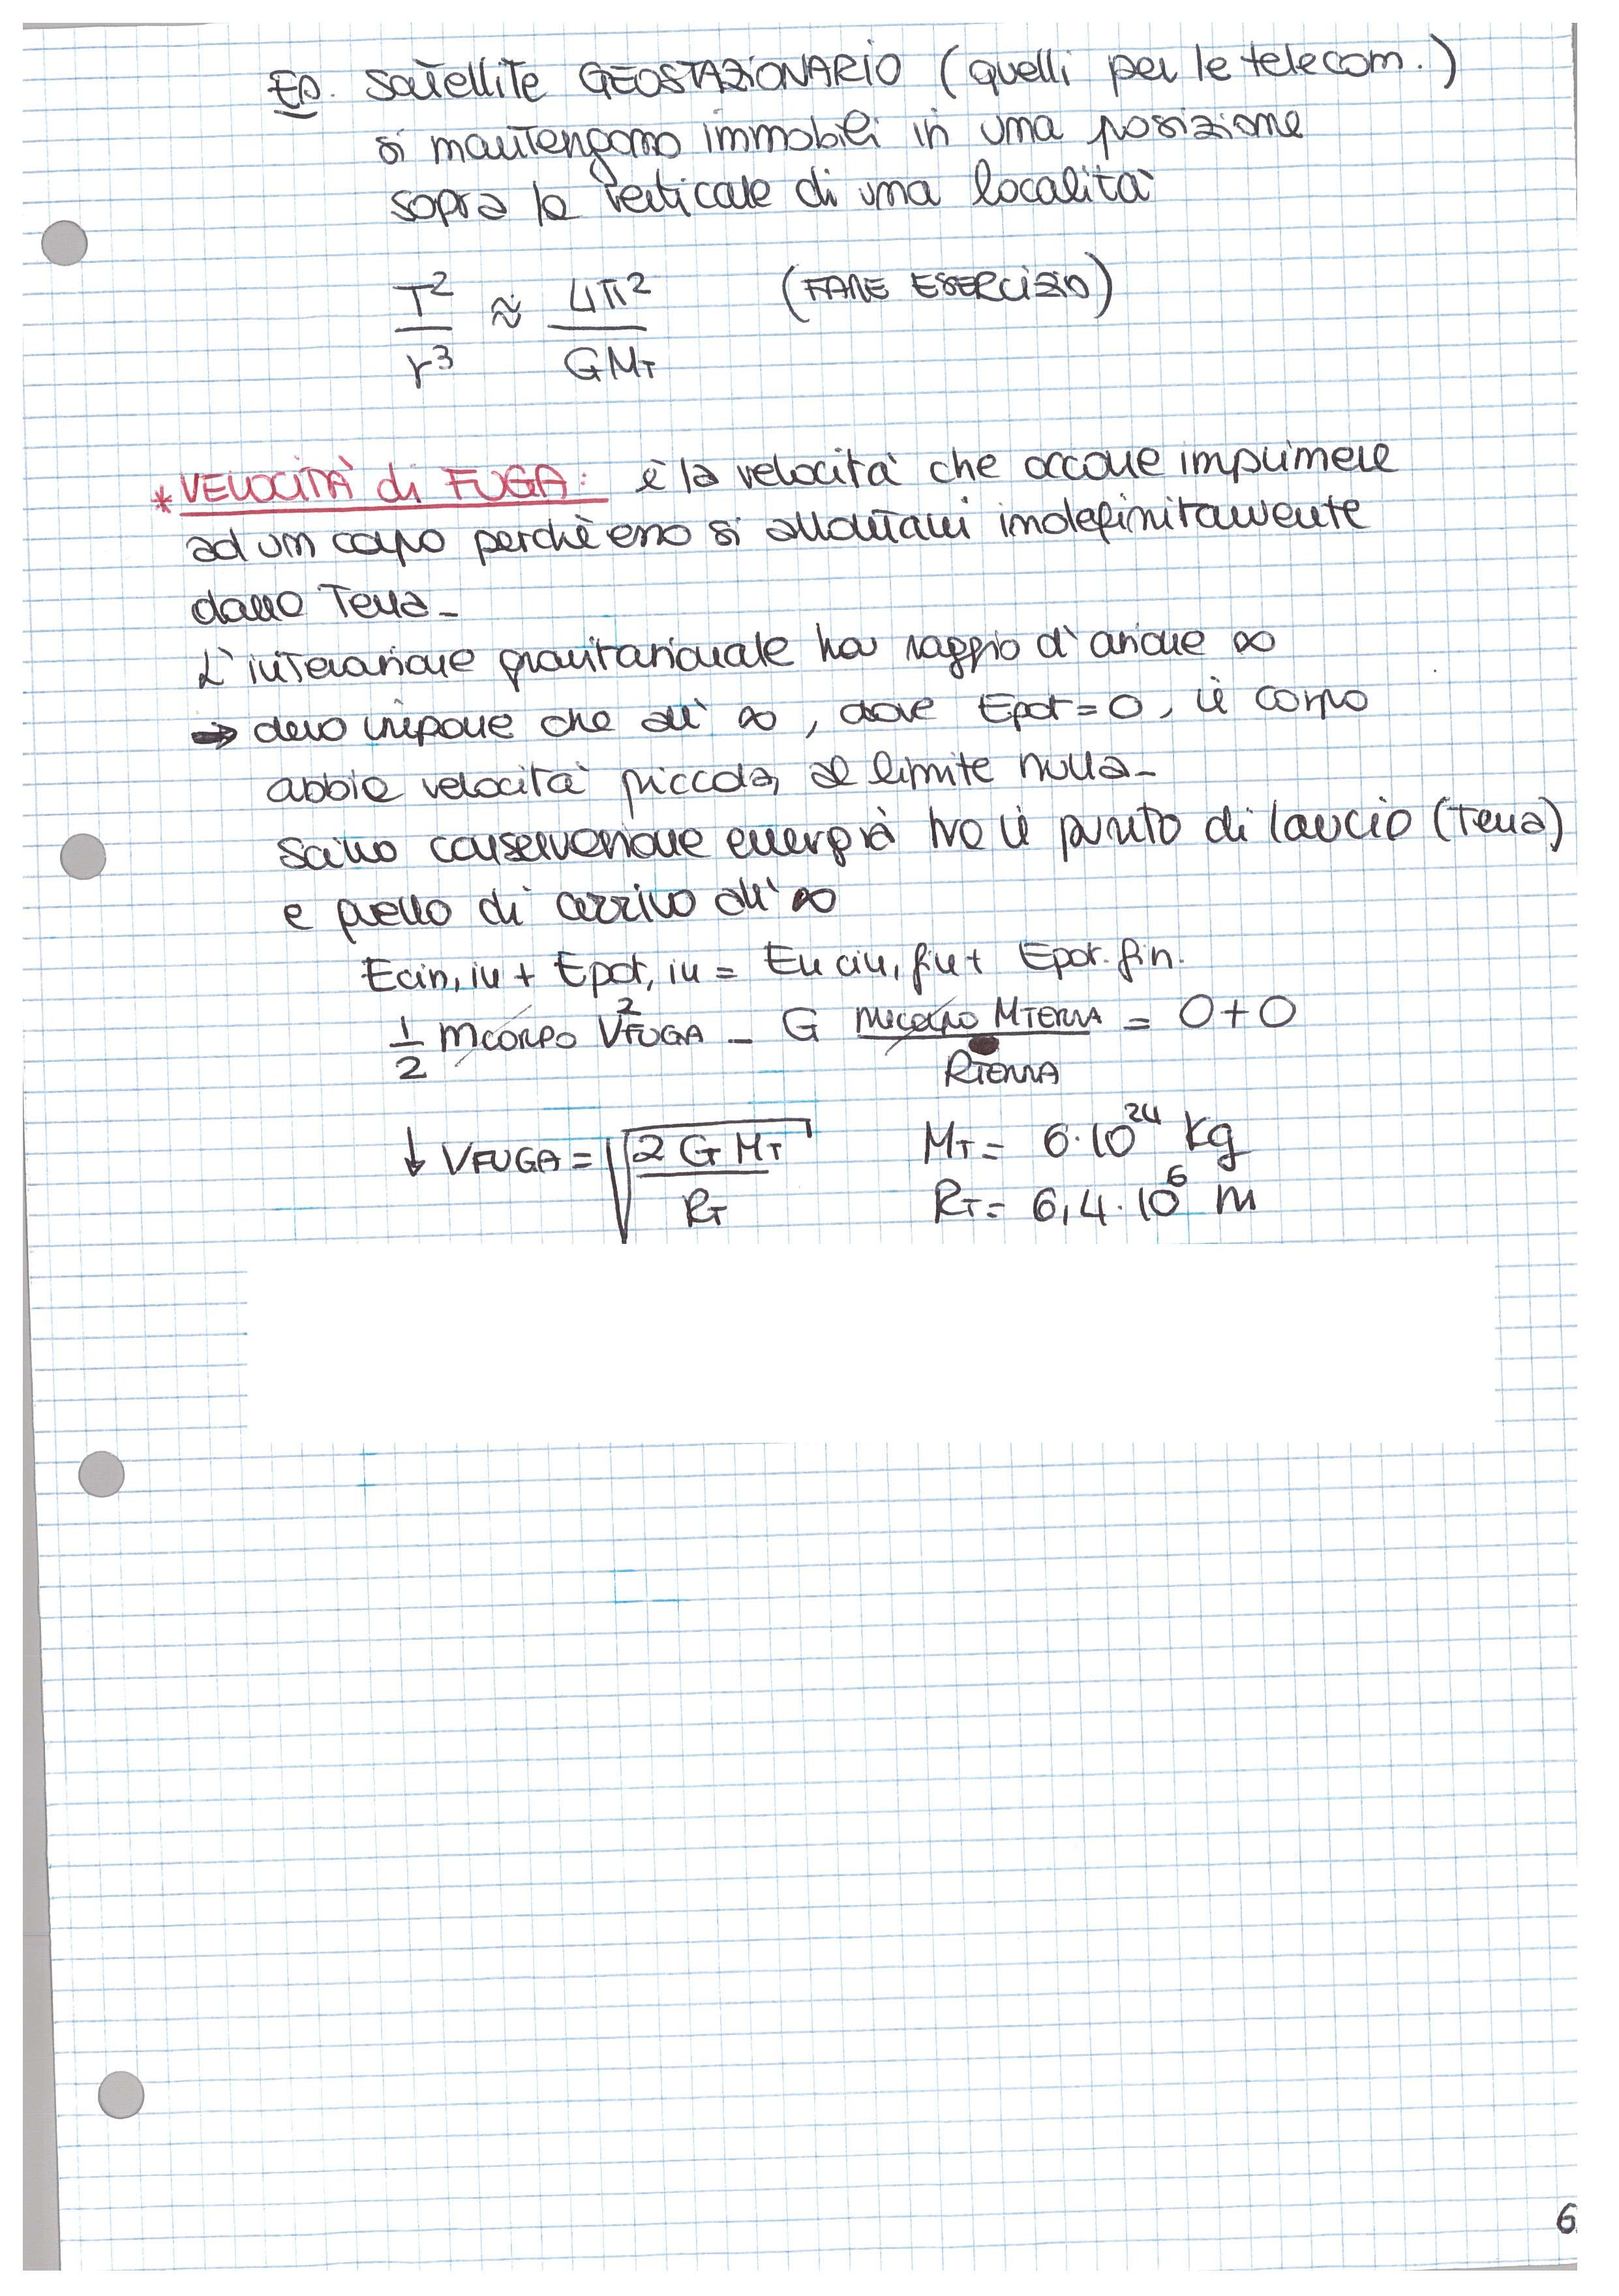 Es. Satellite GEOSTAZIONARIO (quelli per le telecom.)
si mantengono immobili in una posizione
sopra la verticale di una località
T² / r³ ≈ 4π² / GMT (FARE ESERCIZIO)
* VELOCITÀ di FUGA: è la velocità che occorre imprimere
ad un corpo perchè esso si allontani indefinitamente
dalla Terra_
L'interazione gravitazionale ha raggio d'azione ∞
→ devo imporre che all'∞, dove Epot=0, il corpo
abbia velocità piccola, al limite nulla_
Scrivo conservazione energia tra il punto di lancio (Terra)
e quello di arrivo all'∞
Ecin,in + Epot,in = En cin,fin + Epot.fin.
1/2 mcorpo V²FUGA - G mcorpo MTERRA / RTERRA = 0+0
↓ VFUGA = √(2 G MT / RT) MT = 6·10²⁴ kg
RT = 6,4·10⁶ m
6